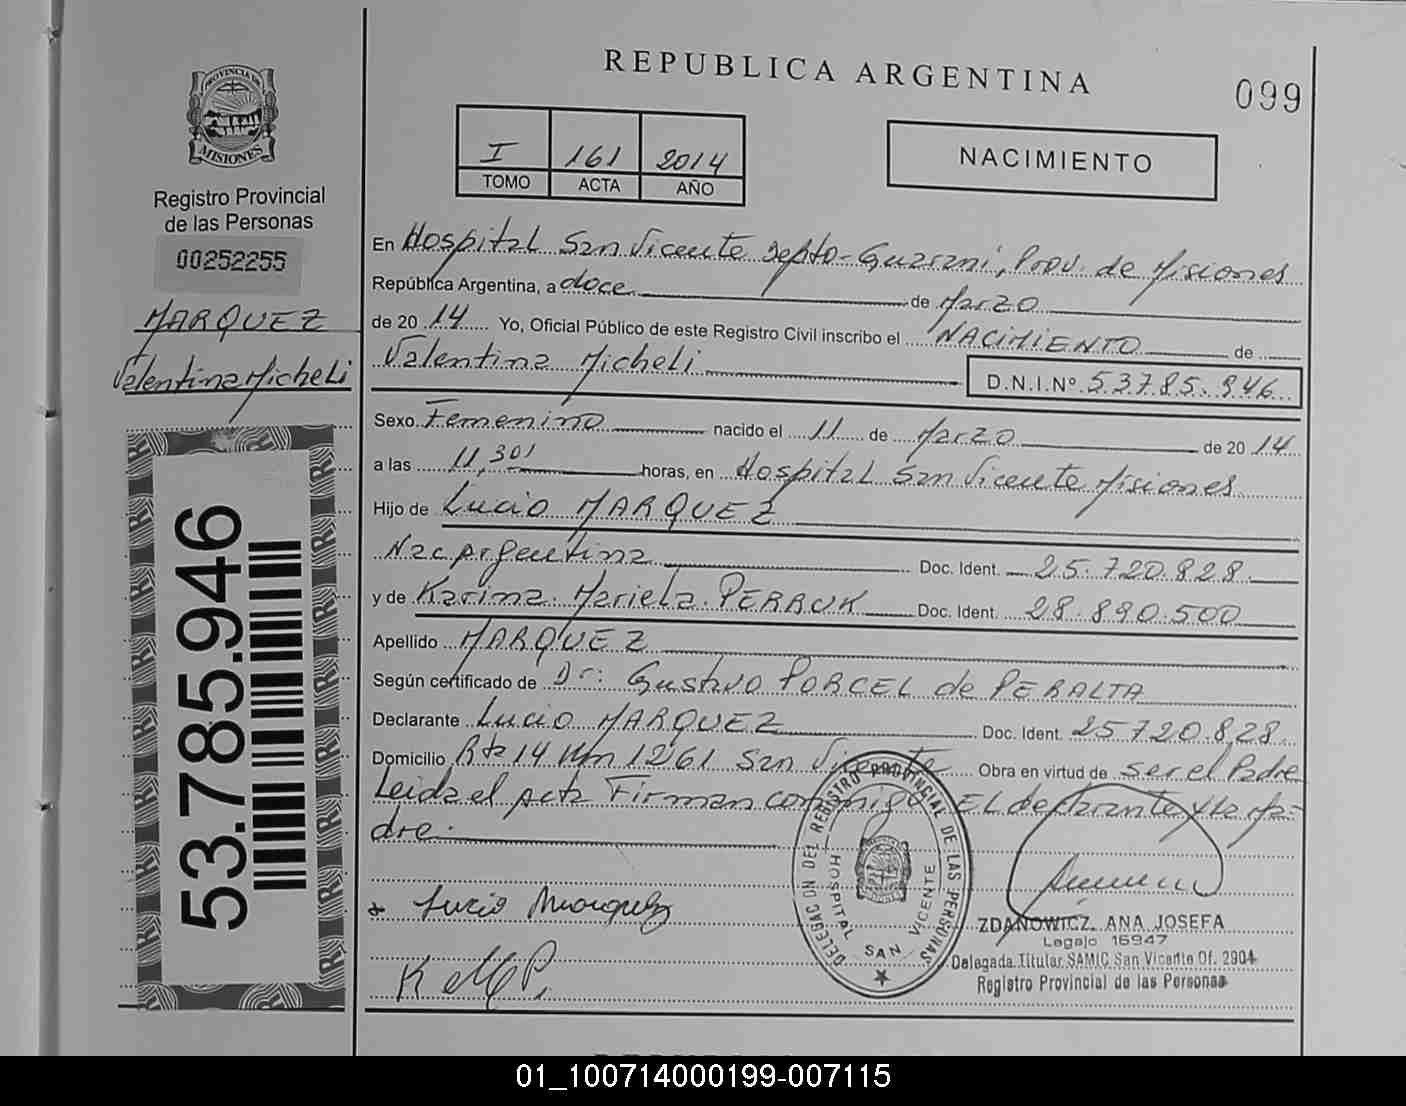 REPUBLICA ARGENTINA
099
PROVINCIA DE
MISIONES
Registro Provincial
de las Personas
00252255
MARQUEZ
Valentina Micheli
53.785.946
I 161 2014
TOMO ACTA AÑO
NACIMIENTO
En Hospital San Vicente Depto-Guarani, Prov. de Misiones
República Argentina, a doce de Marzo
de 20 14 Yo, Oficial Público de este Registro Civil inscribo el NACIMIENTO de
Valentina Micheli D.N.I.Nº 53.785.946
Sexo Femenino nacido el 11 de Marzo de 20 14
a las 11,30' horas, en Hospital San Vicente Misiones
Hijo de Lucio MARQUEZ
Nac Argentina Doc. Ident. 25.720.828
y de Karina Mariela PERRUK Doc. Ident. 28.890.500
Apellido MARQUEZ
Según certificado de Dr: Gustavo PORCEL de PERALTA
Declarante Lucio MARQUEZ Doc. Ident. 25720.828
Domicilio Rta 14 Km 1261 San Vicente Obra en virtud de ser el Padre
Leida el acta Firman conmigo EL declarante y la Ma-
dre.
Lucio Marquez
DELEGACION DEL REGISTRO PROVINCIAL DE LAS PERSONAS
HOSPITAL SAN VICENTE
ZDANOWICZ, ANA JOSEFA
Legajo 16947
Delegada Titular SAMIC San Vicente Of. 2904
Registro Provincial de las Personas
01_100714000199-007115